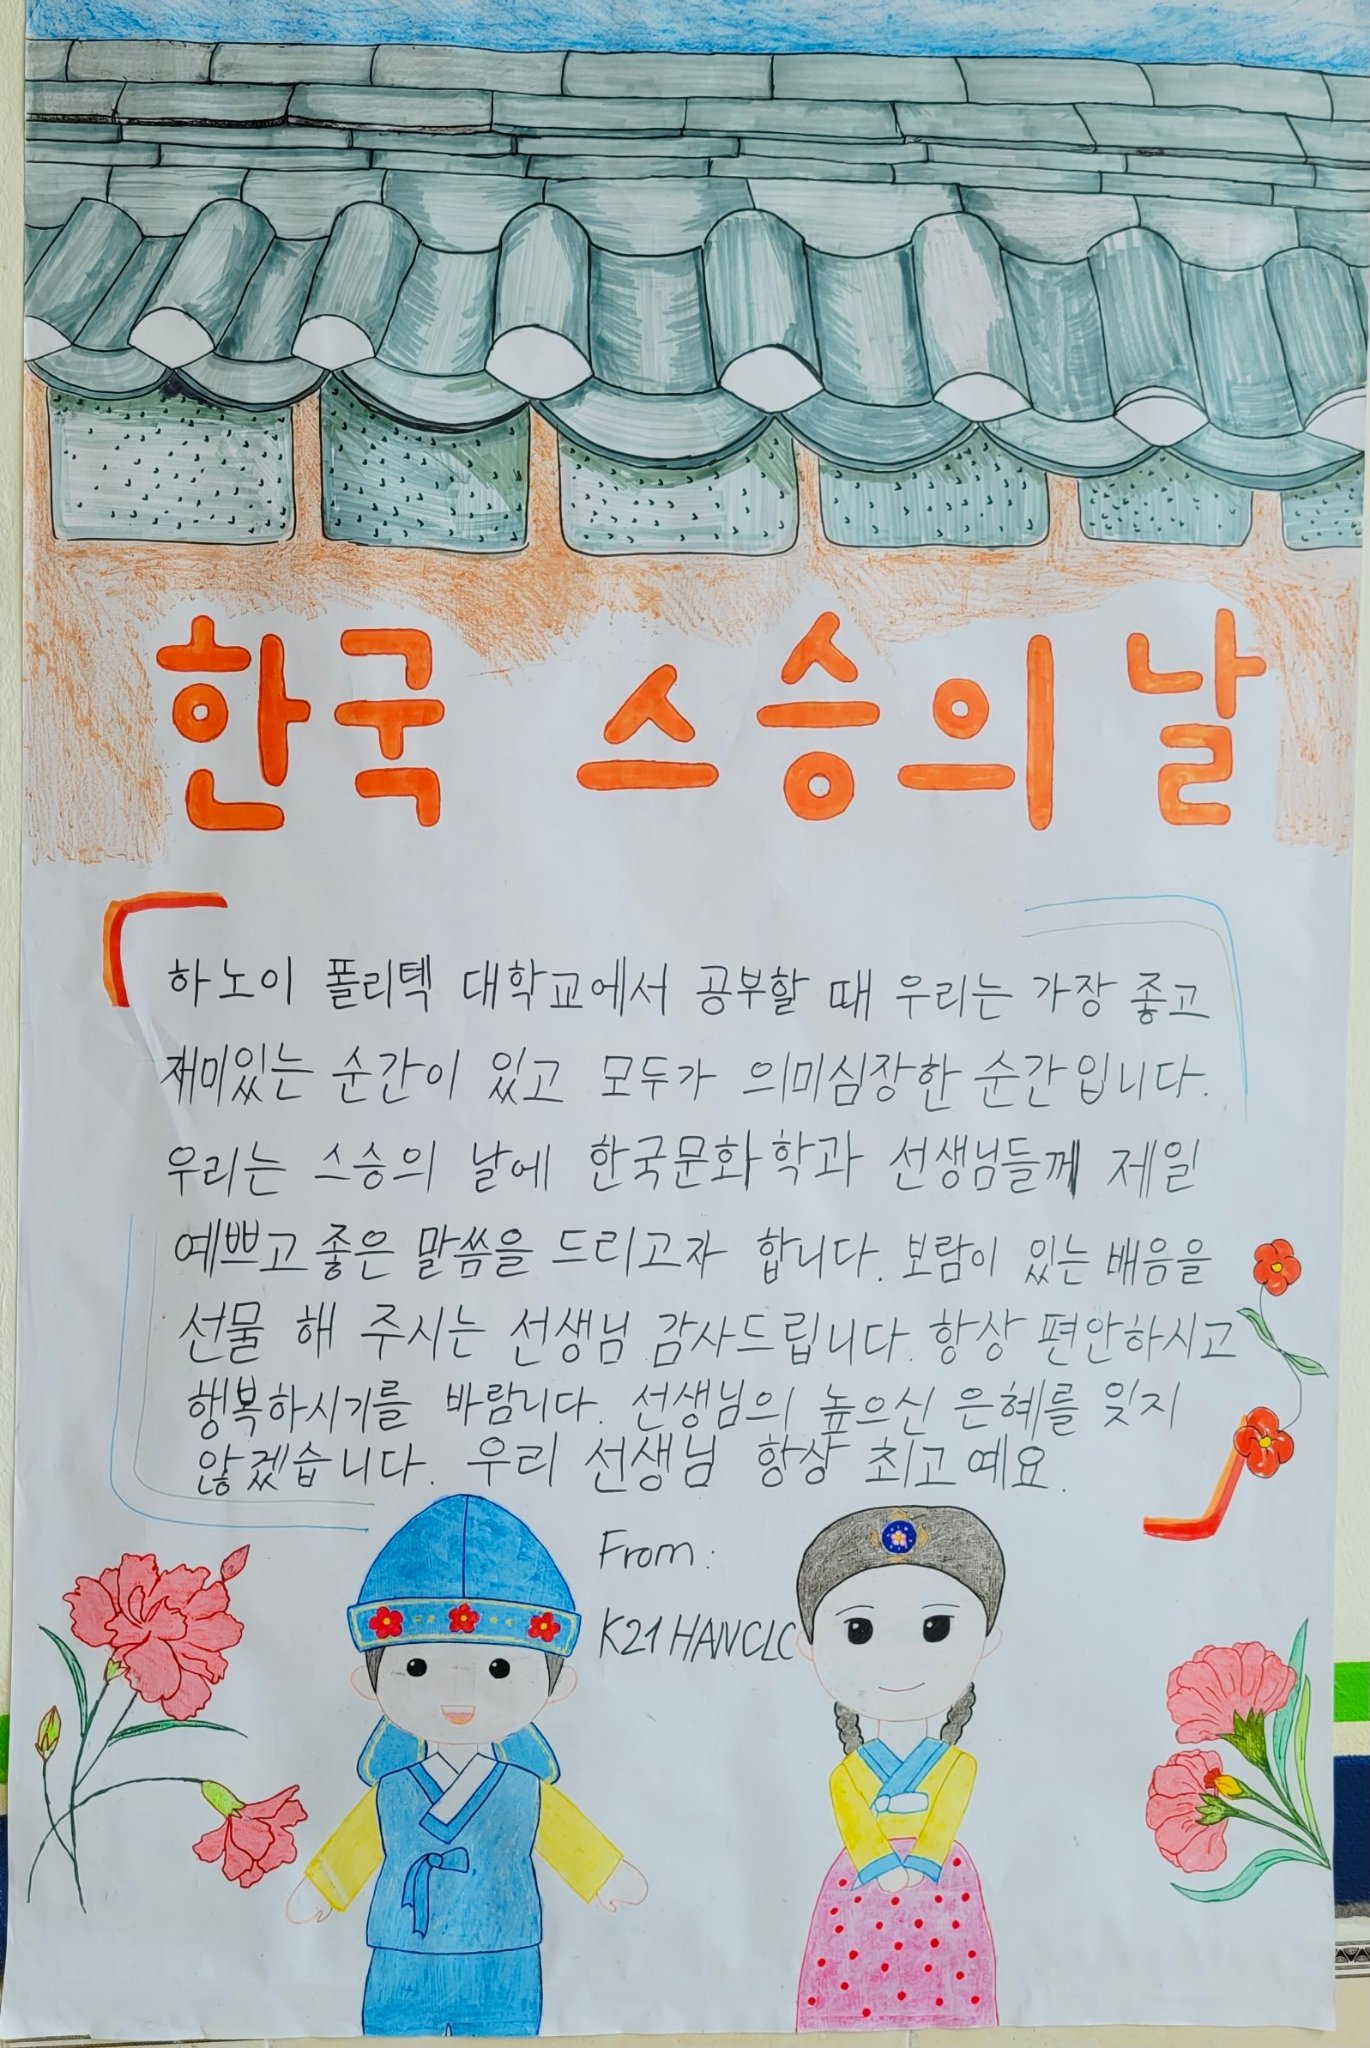 한국 스승의 날
하노이 폴리텍 대학교에서 공부할 때 우리는 가장 좋고
재미있는 순간이 있고 모두가 의미심장한 순간입니다.
우리는 스승의 날에 한국문화학과 선생님들께 제일
예쁘고 좋은 말씀을 드리고자 합니다. 보람이 있는 배움을
선물 해 주시는 선생님 감사드립니다. 항상 편안하시고
행복하시기를 바랍니다. 선생님의 높으신 은혜를 잊지
않겠습니다. 우리 선생님 항상 최고예요.
From:
K21 HANCLC